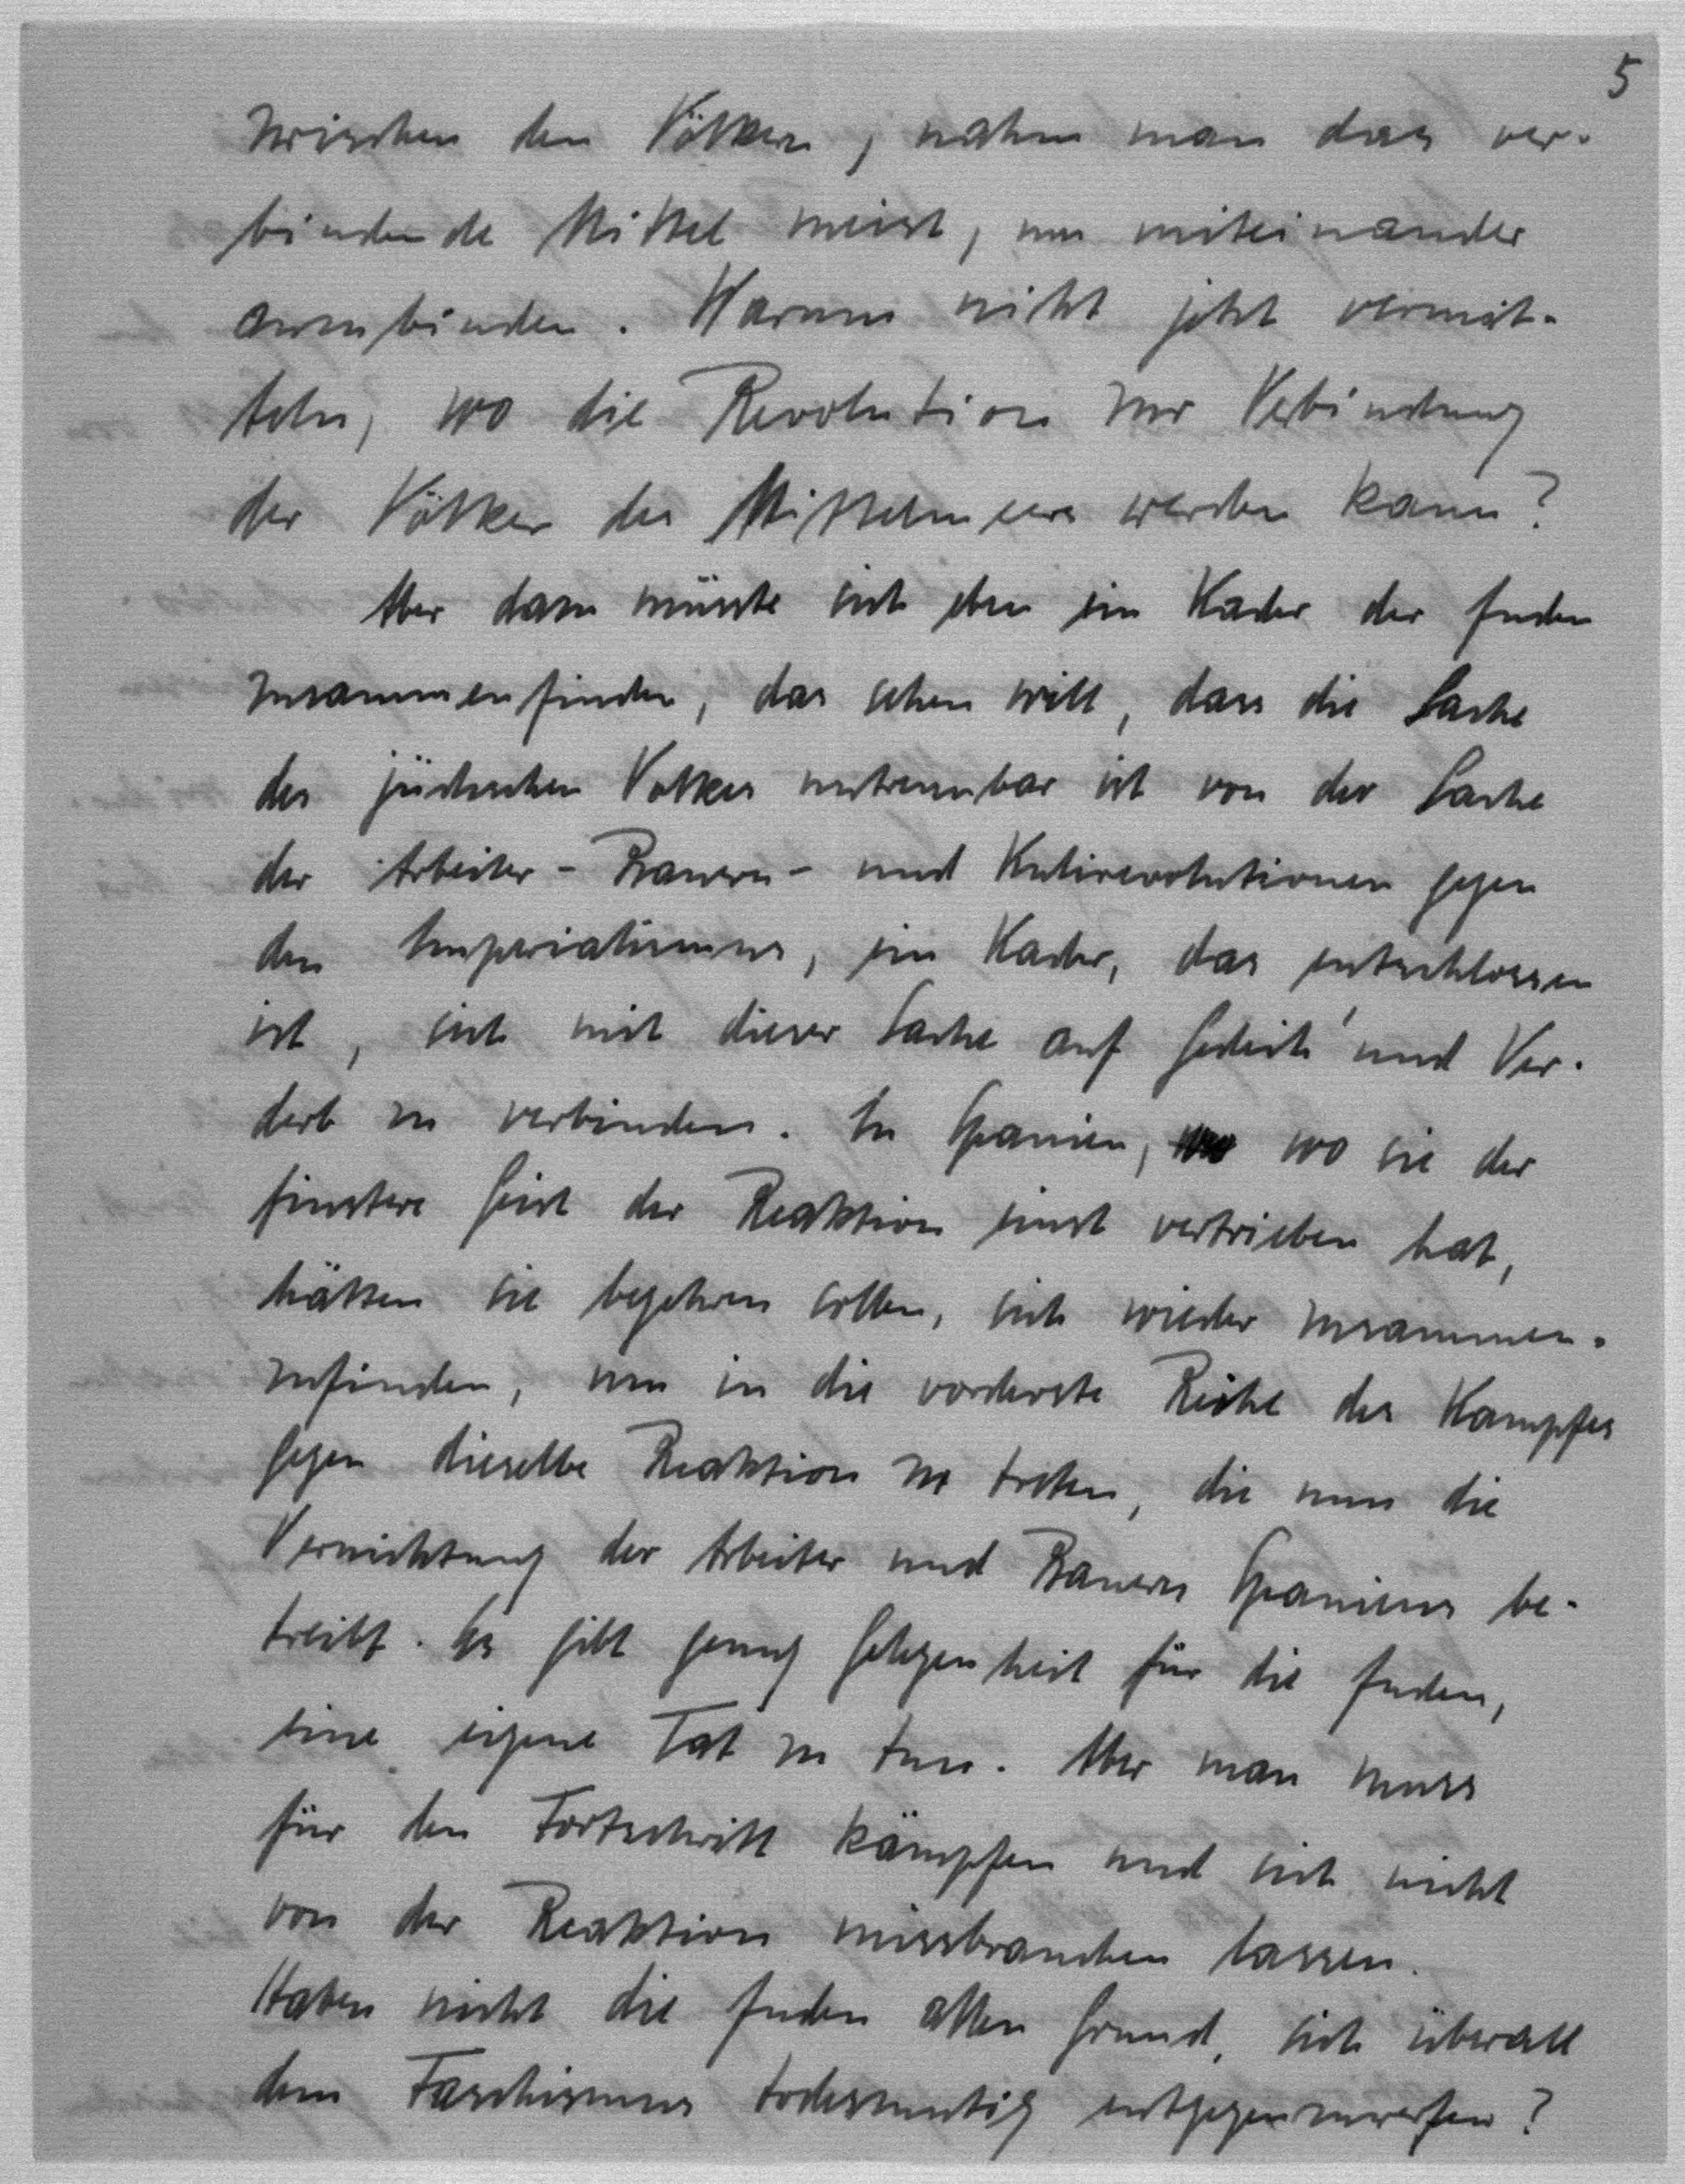 5
zwischen den Völkern, nahm man das ver-
bindende Mittel meist, um miteinander
anzubinden. Warum nicht jetzt vermit-
teln, wo die Revolution zur Verbindung
der Völker des Mittelmeers werden kann?
Aber dazu müsste sich eben ein Kader der Juden
zusammenfinden, das sehen will, dass die Sache
des jüdischen Volkes untrennbar ist von der Sache
der Arbeiter- Bauern- und Kulirevolutionen gegen
den Imperialismus, ein Kader, das entschlossen
ist, sich mit dieser Sache auf Gedeih' und Ver-
derb zu verbinden. In Spanien, wo sie der
finstere Geist der Reaktion einst vertrieben hat,
hätten sie begehren sollen, sich wieder zusammen-
zufinden, um in die vorderste Reihe des Kampfes
gegen dieselbe Reaktion zu treten, die nun die
Vernichtung der Arbeiter und Bauern Spaniens be-
treibt. Es gibt genug Gelegenheit für die Juden,
eine eigene Tat zu tun. Aber man muss
für den Fortschritt kämpfen und sich nicht
von der Reaktion missbrauchen lassen.
Haben nicht die Juden allen Grund, sich überall
dem Faschismus todesmutig entgegenzuwerfen?